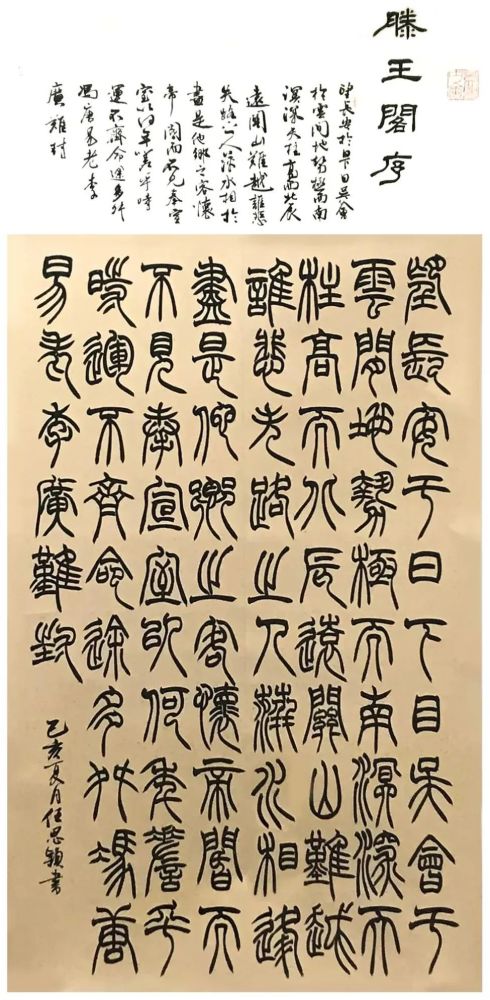 滕王閣序
望長安於日下目吳會
於雲間地勢極而南
溟深天柱高而北辰
遠關山難越誰悲
失路之人萍水相逢
盡是他鄉之客懷
帝閽而不見奉宣
室以何年嗟乎時
運不齊命運多舛
馮唐易老李
廣難封
望長安于日下目吳會于
雲間地勢極而南溟深天
柱高而北辰遠關山難越
誰悲失路之人萍水相逢
盡是他鄉之客懷帝閽而
不見奉宣室以何年嗟乎
時運不齊命途多舛馮唐
易老李廣難封
己亥夏月任思穎書